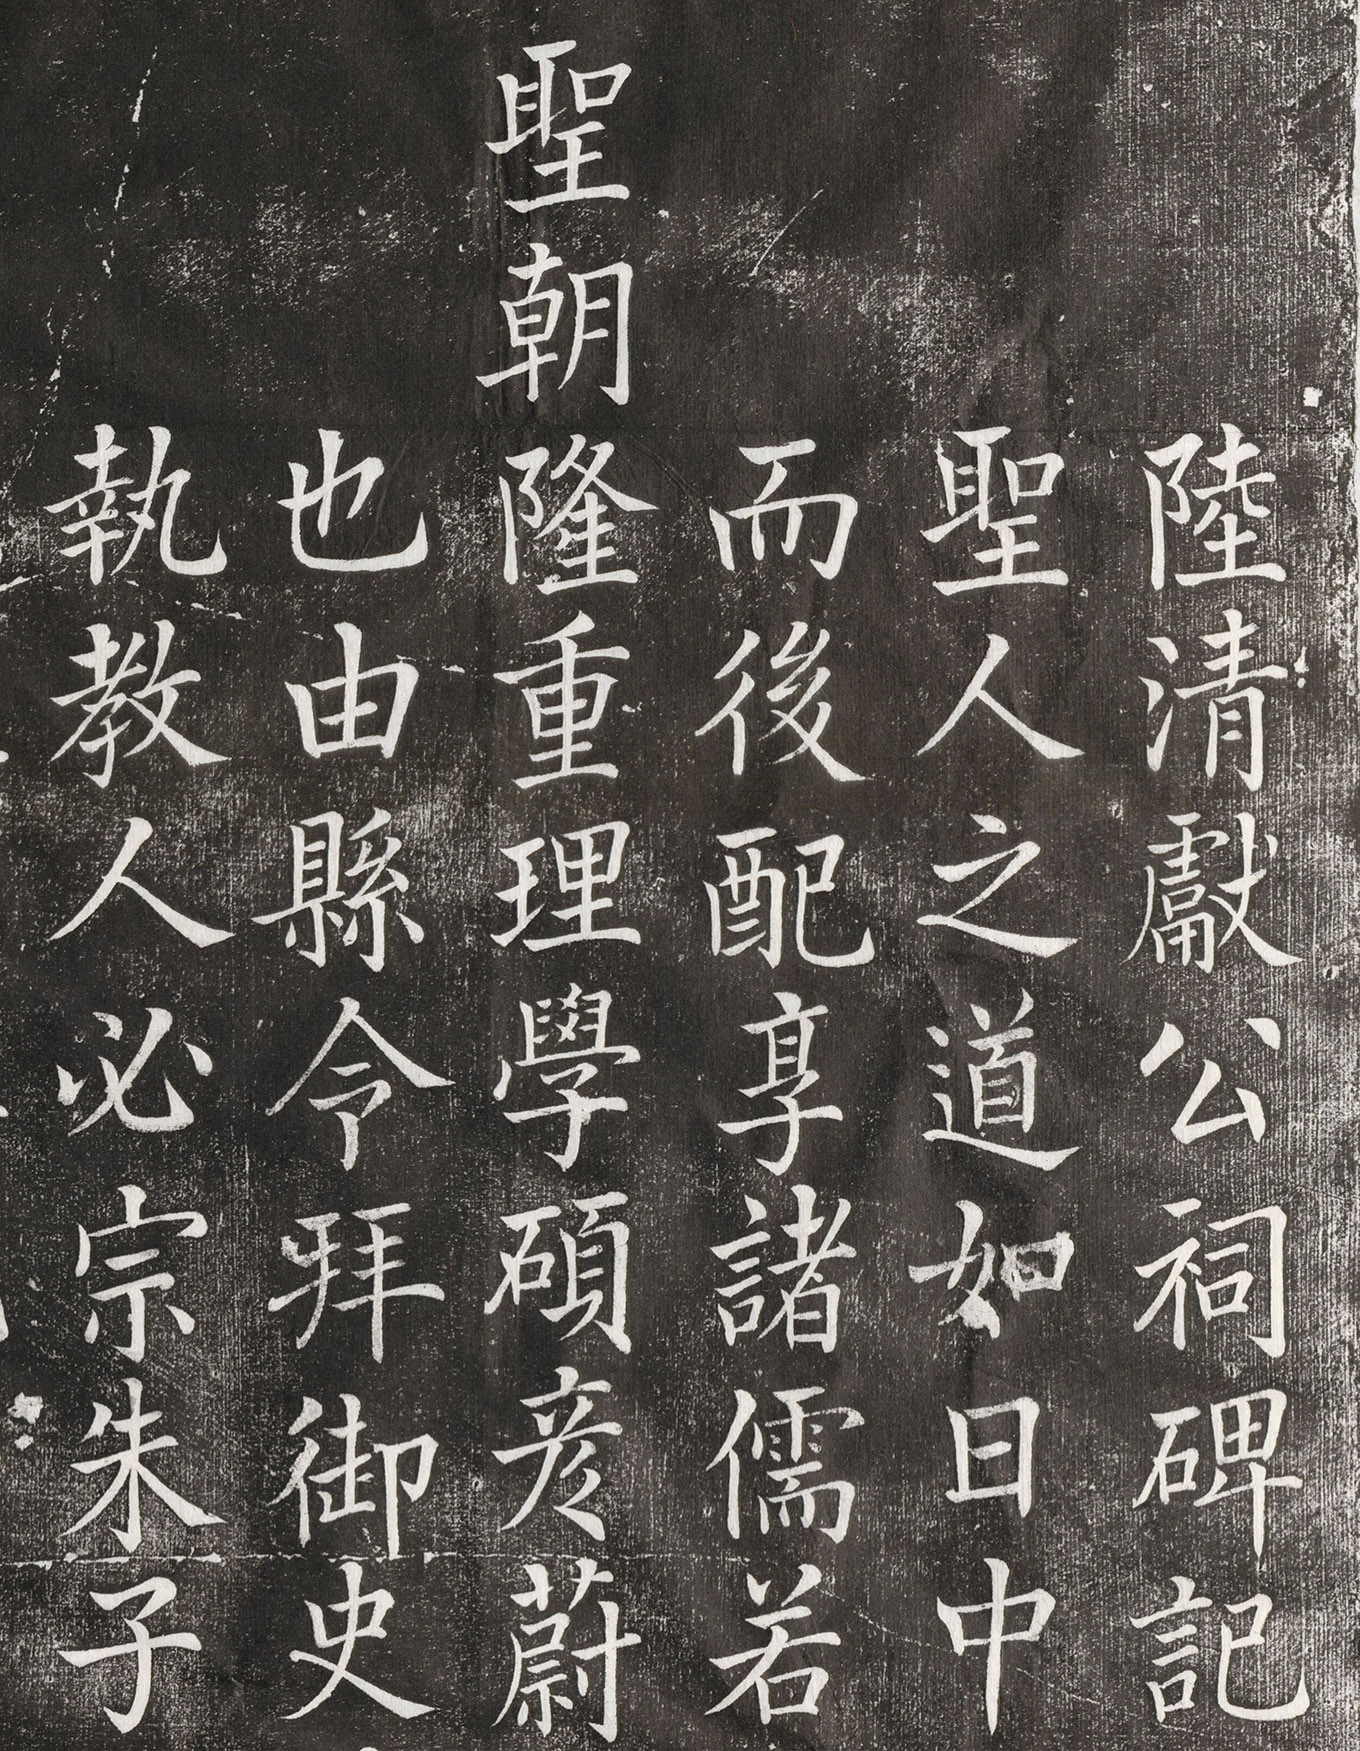 陸清獻公祠碑記
聖人之道如日中
而後配享諸儒若
聖朝隆重理學碩彦蔚
也由縣令拜御史
執教人必宗朱子